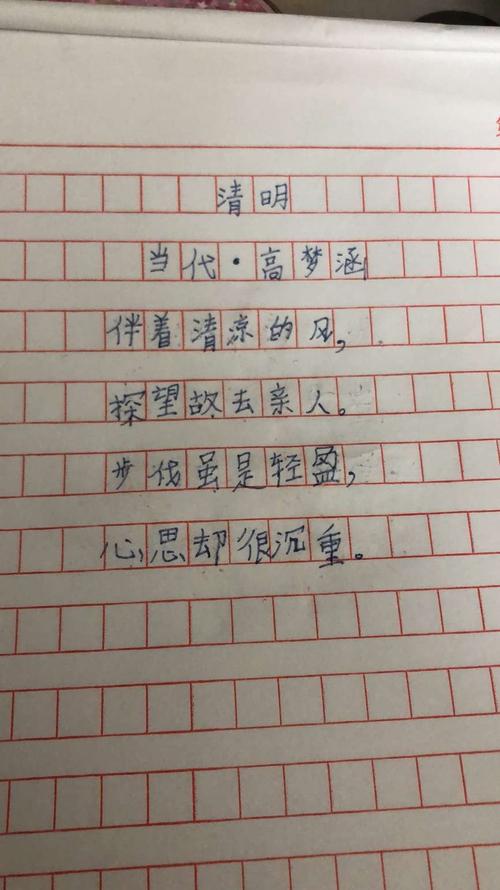 清明
当代·高梦涵
伴着清凉的风，
探望故去亲人。
步伐虽是轻盈，
心思却很沉重。